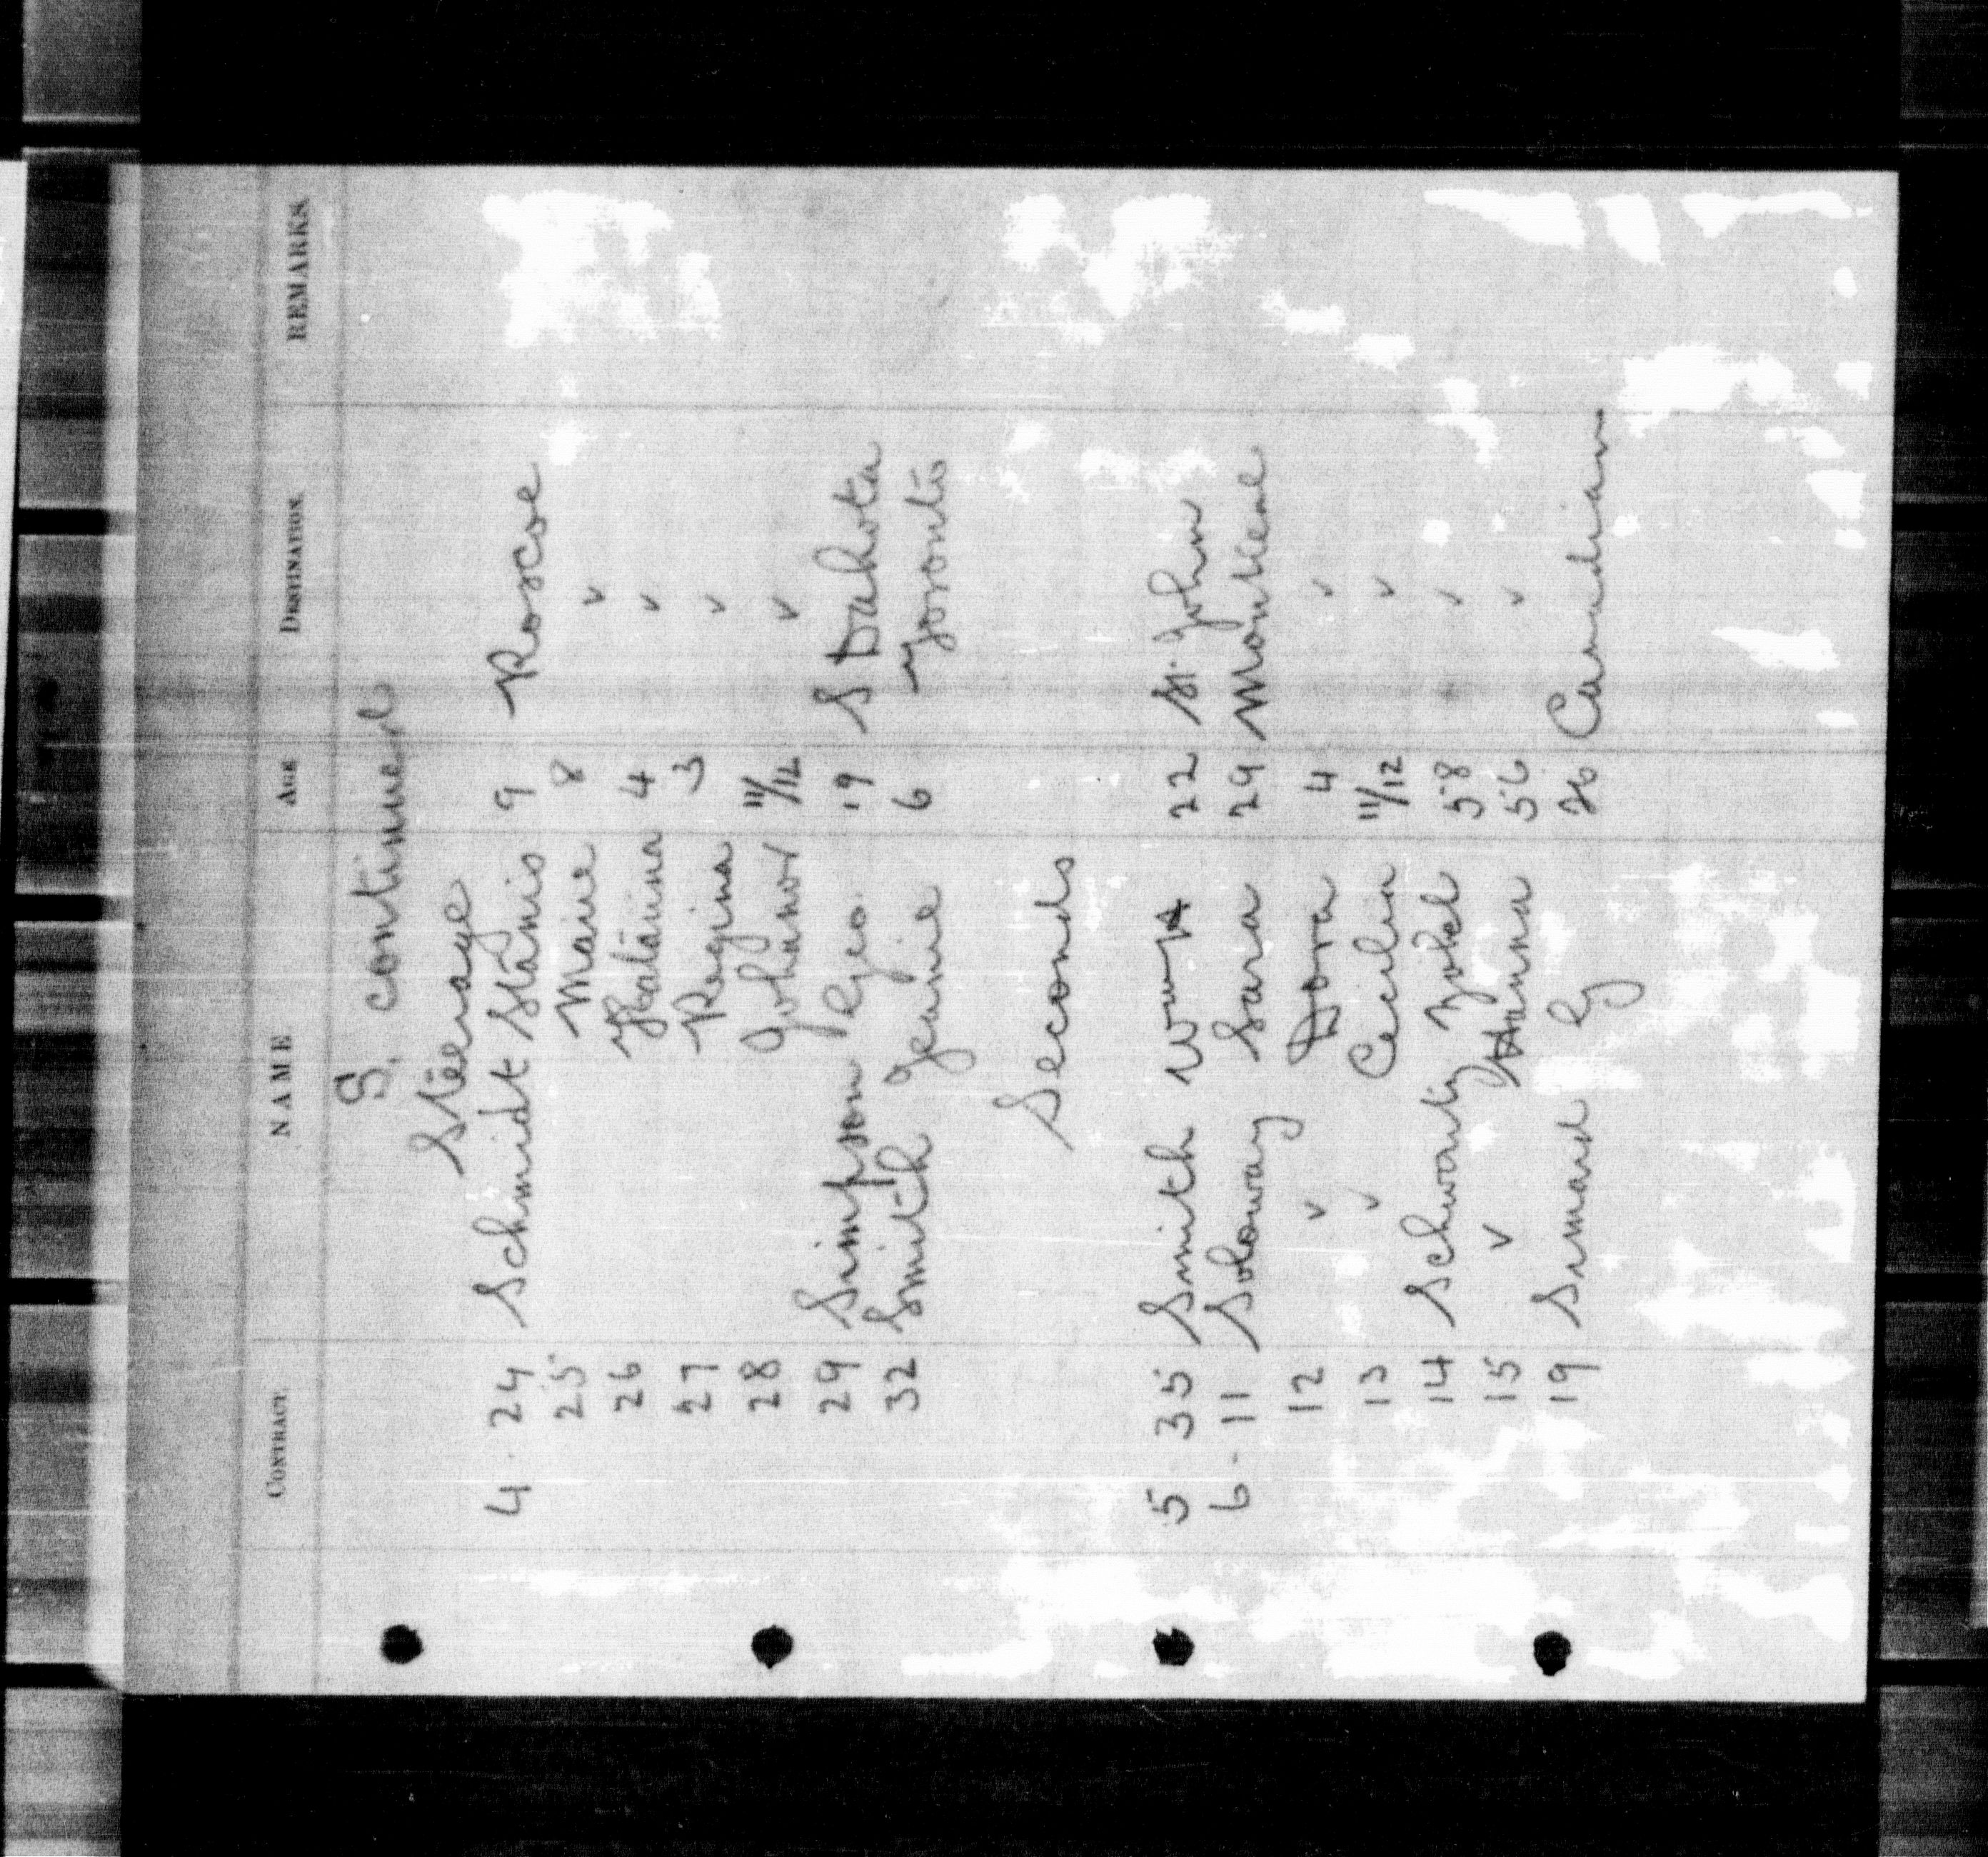 CONTRACT NAME AGE DESTINATION REMARKS
S. continued
Steerage
4 24 Schmidt Stanis 9 Roscoe
25 Marie 8 ✓
26 Katarina 4 ✓
27 Regina 3 ✓
28 Johanor 11/12 ✓
29 Simpson Geo. 19 S Dakota
32 Smith Jeanie 6 Toronto
Seconds
5 35 Smith Wm A 22 St. John
6 - 11 Soloway Sara 29 Montreal
12 ✓ Dora 4 ✓
13 ✓ Cecilia 11/12 ✓
14 Schwartz 58 ✓
15 ✓ Hanna 56 ✓
19 Simard G 26 Canadian